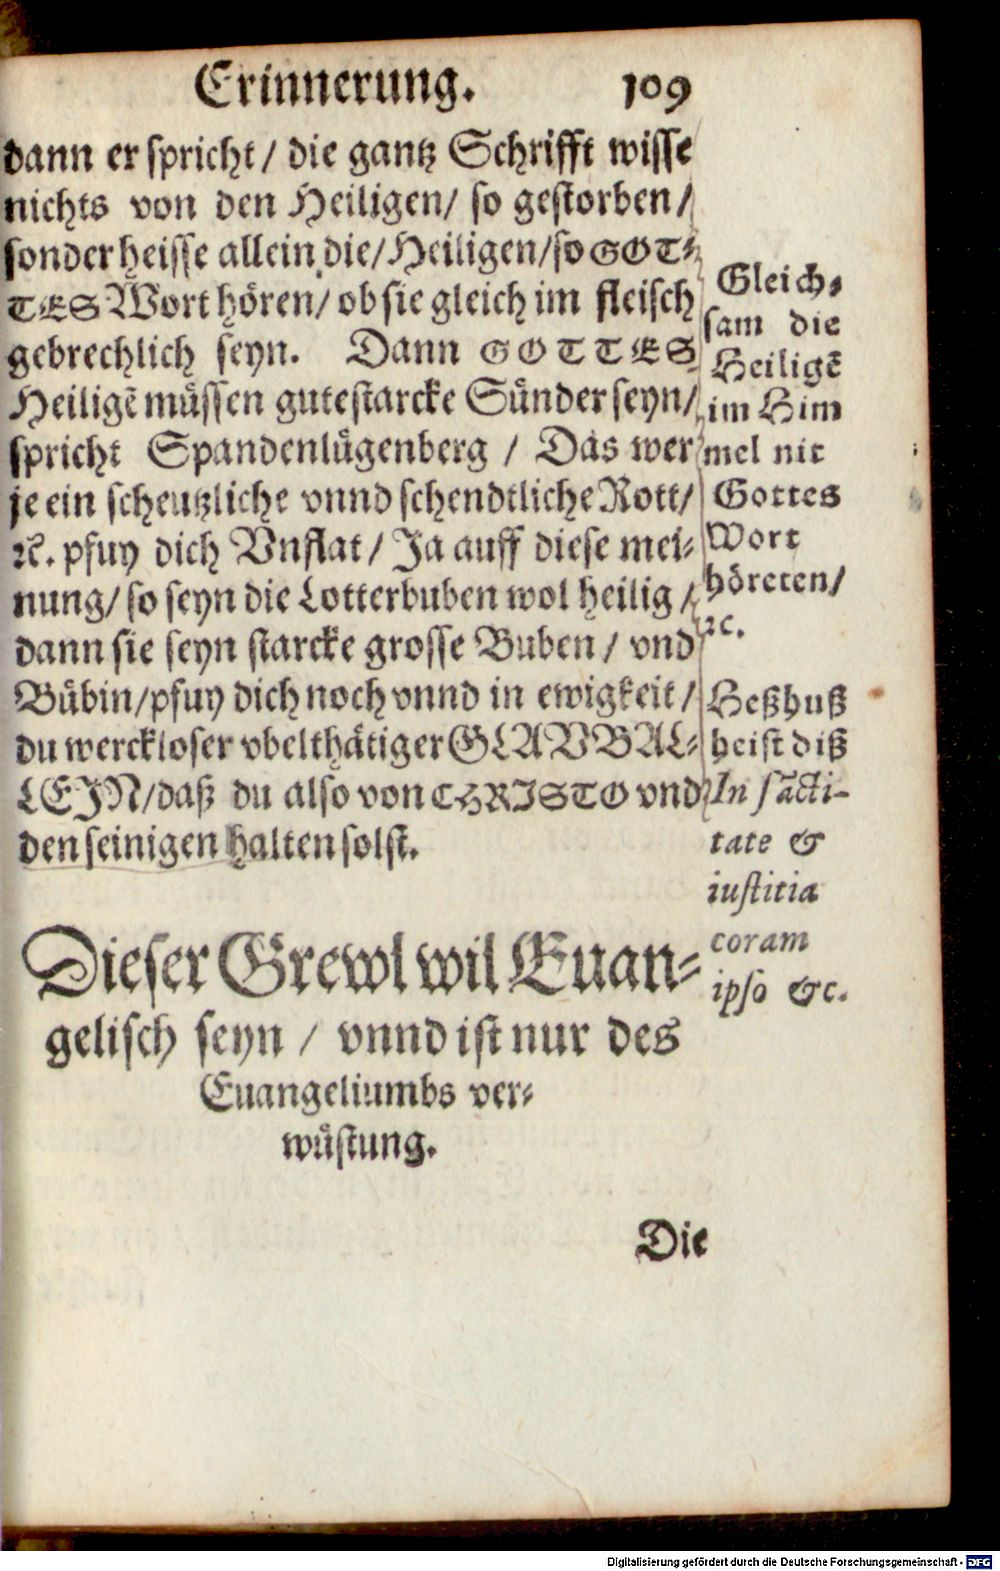 Erinnerung. 109
dann er spricht / die gantz Schrifft wisse
nichts von den Heiligen / so gestorben /
sonder heisse allein die / Heiligen / so GOT-
TES Wort hören / ob sie gleich im fleisch
gebrechlich seyn. Dann GOTTES
Heiligẽ müssen gute starcke Sünder seyn /
spricht Spandenlügenberg / Das wer
je ein scheutzliche vnnd schendtliche Rott /
ꝛc. pfuy dich Vnflat / Ja auff diese mei-
nung / so seyn die Lotterbuben wol heilig /
dann sie seyn starcke grosse Buben / vnd
Bübin / pfuy dich noch vnnd in ewigkeit /
du werckloser vbelthätiger GLAVBAL-
LEIN / daß du also von CHRISTO vnd
den seinigen halten solst.
Gleich-
sam die
Heiligẽ
im Him
mel nit
Gottes
Wort
höreten /
ꝛc.
Heßhuß
heist diß
In sãcti-
tate &
iustitia
coram
ipso &c.
Dieser Grewl wil Euan-
gelisch seyn / vnnd ist nur des
Euangeliumbs ver-
wüstung.
Die
Digitalisierung gefördert durch die Deutsche Forschungsgemeinschaft - DFG